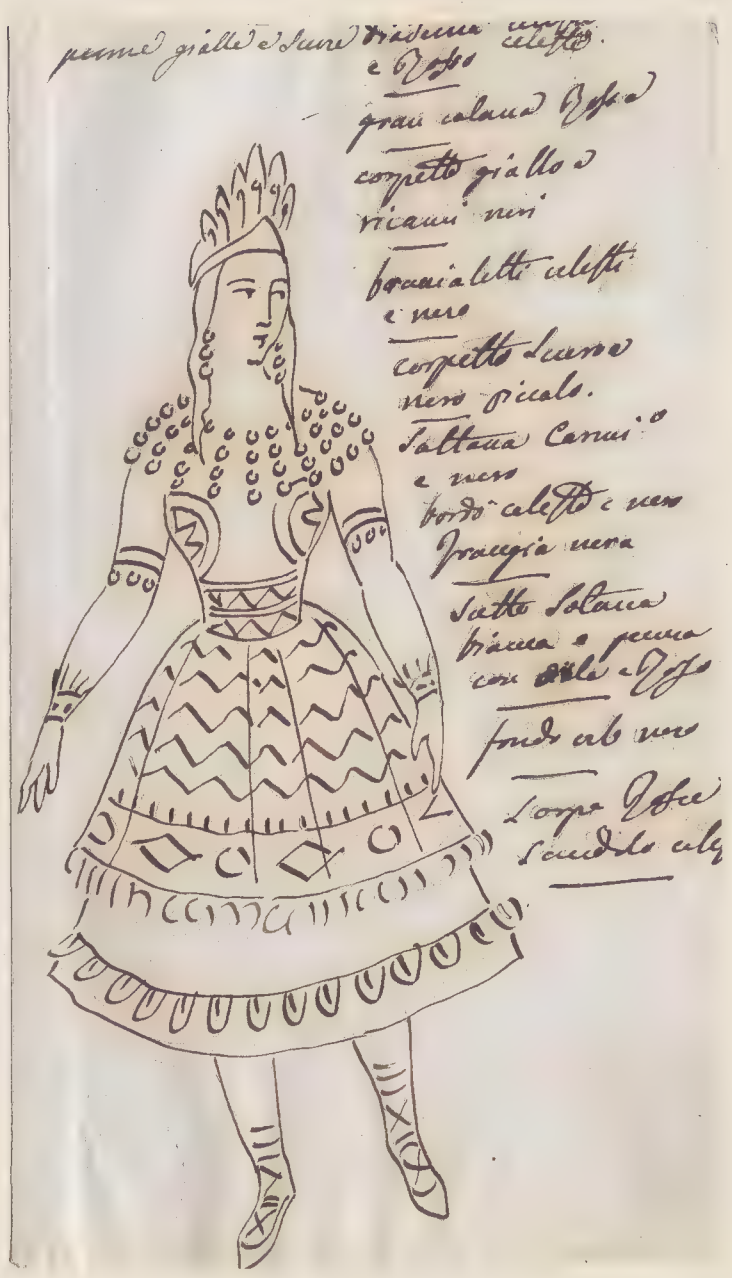 penne gialle e scure
diadema celeste.
e Rosso
gran colana Rossa
corpetto giallo e
ricami neri
braccialetti celesti
e nero
corpetto scuro e
nero piccolo.
sottana Carmi o
e nero
bordo celeste e nero
frangia nera
sotto sotana
bianca e penna
con e Rosso
fondo nero
scarpe Rosse